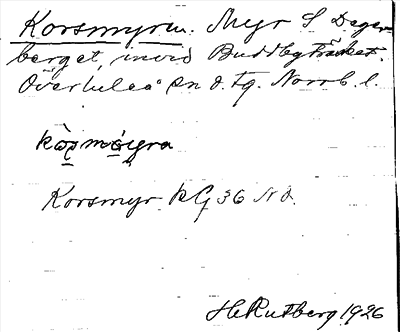 Korsmyrn. Myr S Dager-
berget, invid Buddbyträsket.
Överluleå sn o. tg. Norrb. l.
kòṣmó̱yra
Korsmyr kG 36 N d.
H Rutberg 1926